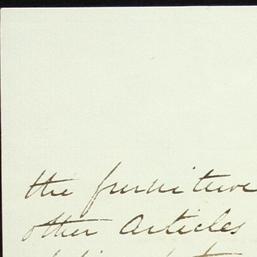 the furniture
other Articles